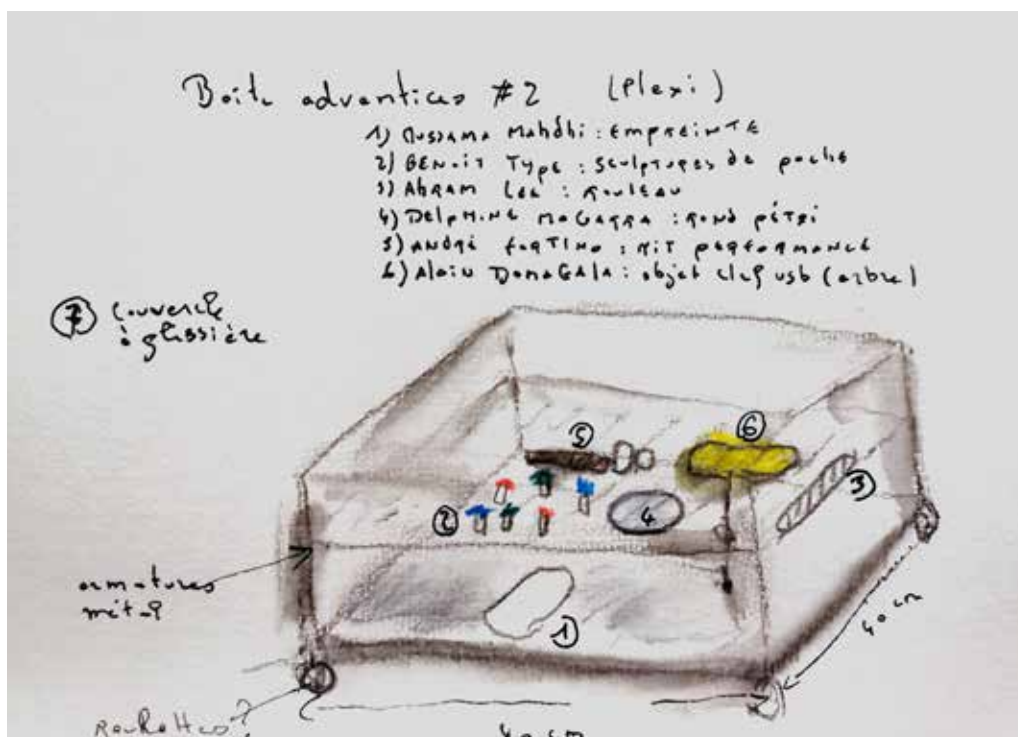 Boite adventices #2 (Plexi)
1) Oussama Mahdhi : EMPREINTE
2) BENOIT TYPE : Sculptures de poche
3) ABRAM LEE : ROULEAU
4) DELPHINE MOGARRA : ROND PÉTRI
5) ANDRÉ FORTINO : KIT PERFORMANCE
6) Alain DOMAGALA : objet clef usb (arbre)
7 couvercle
à glissière
6
5
3
2
4
armatures
métal
1
40 cm
Roulettes?
40 cm